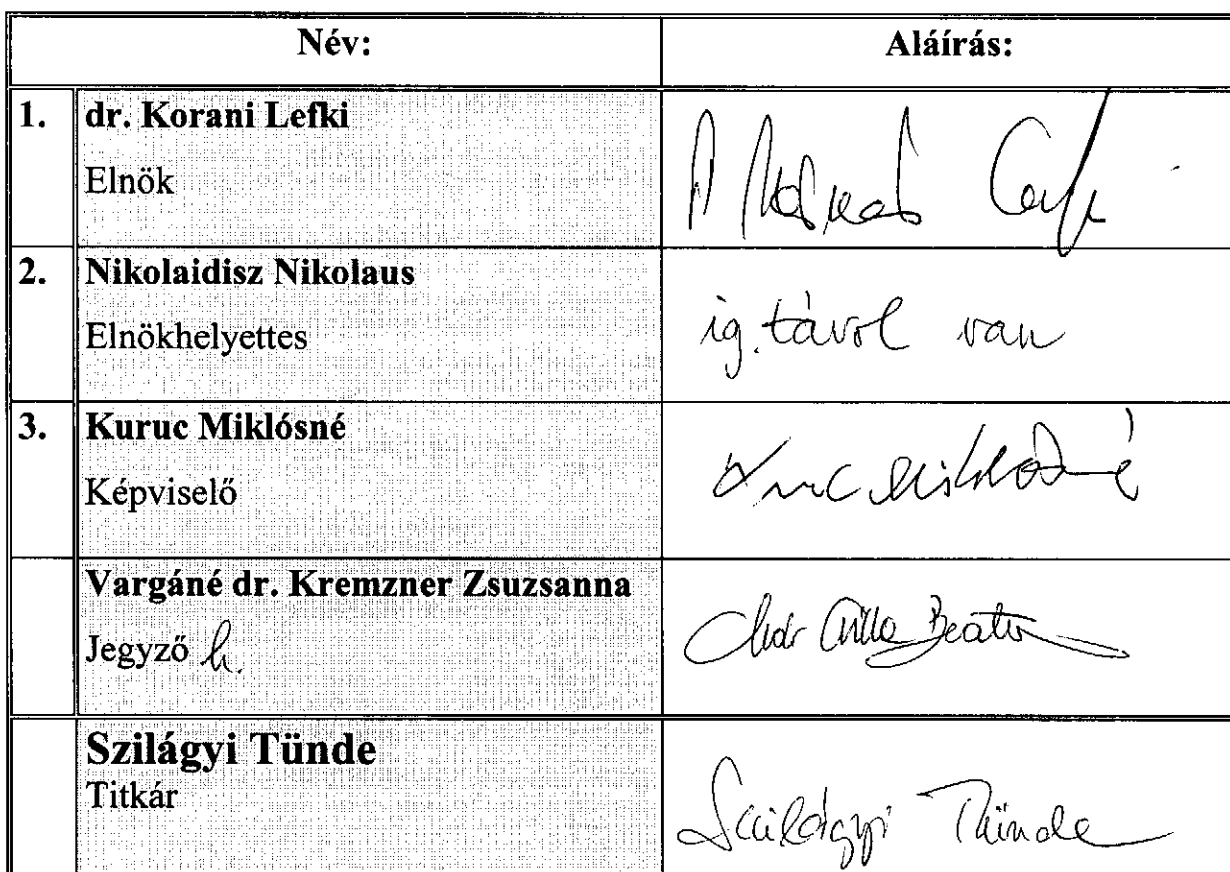 Név: Aláírás:
1. dr. Korani Lefki
Elnök
2. Nikolaidisz Nikolaus
Elnökhelyettes ig. távol van
3. Kuruc Miklósné
Képviselő Kuruc Miklósné
Vargáné dr. Kremzner Zsuzsanna
Jegyző h. Csilla Beatrix
Szilágyi Tünde
Titkár Szilágyi Tünde